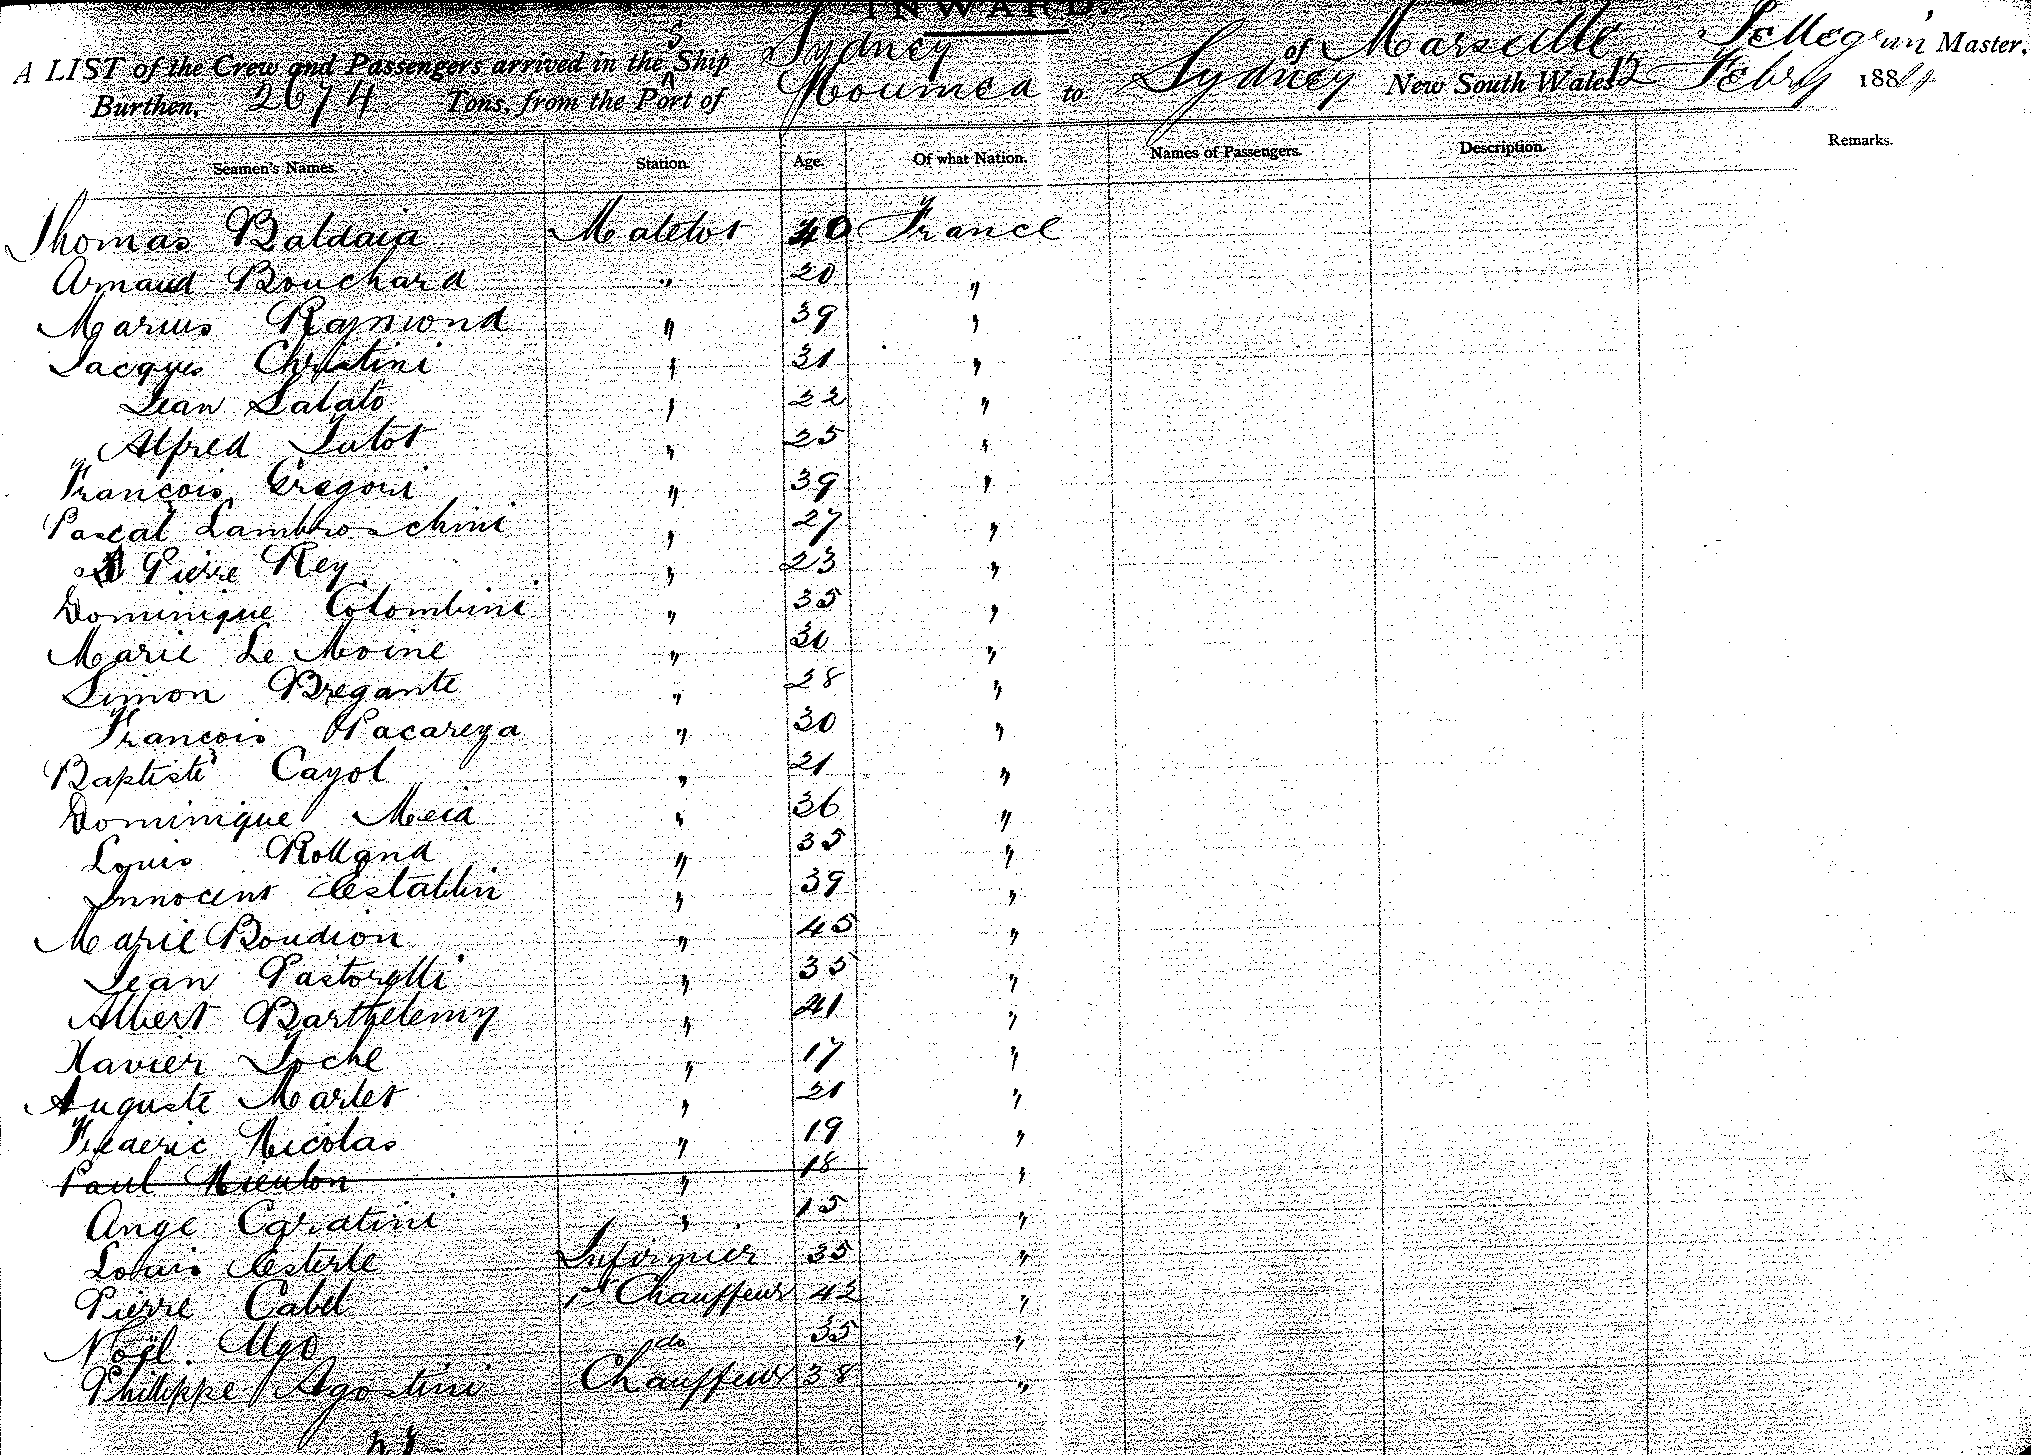 INWARD
A LIST of the Crew and Passengers arrived in the S Ship Sydney of Marseille, Pellegrin Master,
Burthen, 2674 Tons, from the Port of Noumea to Sydney New South Wales 12 Febry 1884
Seamen's Names. Station. Age. Of what Nation. Names of Passengers. Description. Remarks.
Thomas Baldaia Matelot 40 France
Arnaud Bouchard " 20 "
Marius Raymond " 39 "
Jacques Christini " 31 "
Jean Salato " 22 "
Alfred Jutot " 25 "
François Gregori " 39 "
Pascal Lambroschini " 27 "
Pierre Rey " 23 "
Dominique Colombini " 35 "
Marie Le Moine " 30 "
Simon Bregante " 28 "
François Pacareza " 30 "
Baptiste Cayol " 21 "
Dominique Meia " 36 "
Louis Rolland " 35 "
Innocent Establin " 39 "
Marie Boudion " 45 "
Jean Pastorelli " 35 "
Albert Barthelemy " 41 "
Xavier Loche " 17 "
Auguste Martet " 21 "
Frederic Nicolas " 19 "
Paul Nieulon " 18 "
Ange Caratini " 15 "
Louis Esterle Infirmier 35 "
Pierre Cabel 1er Chauffeur 42 "
Noël Ugo do 35 "
Philippe Agostini Chauffeur 38 "